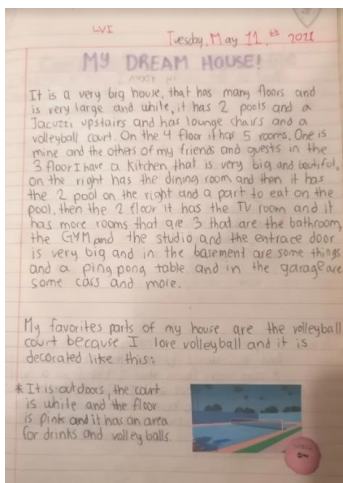 LVI
Tuesday, May 11th 2021
MY DREAM HOUSE!
It is a very big house, that has many floors and
is very large and white, it has 2 pools and a
Jacuzzi upstairs and has lounge chairs and a
volleyball court. On the 4 floor it has 5 rooms. One is
mine and the others of my friends and guests in the
3 floor I have a Kitchen that is very big and beatiful,
on the right has the dining room and then it has
the 2 pool on the right and a part to eat on the
pool, then the 2 floor it has the TV room and it
has more rooms that are 3 that are the bathroom,
the GYM and the studio and the entrace door
is very big and in the basement are some things
and a ping pong table and in the garage are
some cars and more.
My favorites parts of my house are the volleyball
court because I love volleyball and it is
decorated like this:
* It is outdoors, the court
is white and the floor
is pink and it has an area
for drinks and volleyballs